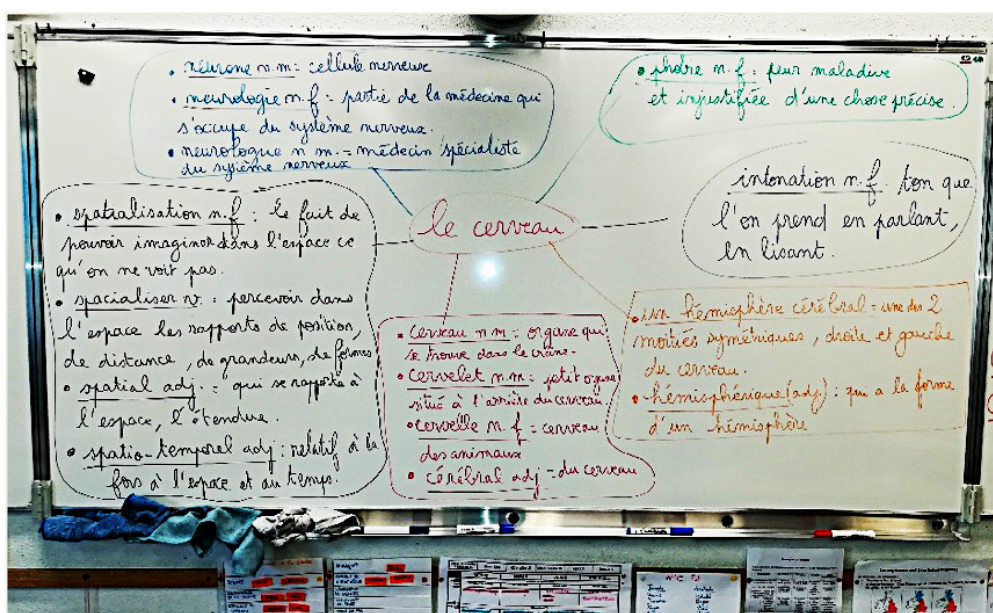 • neurone n.m : cellule nerveux
• neurologie n.f : partie de la médecine qui
s'occupe du système nerveux.
• neurologue n m. = médecin spécialiste
du système nerveux
• phobie n.f : peur maladive
et injustifiée d'une chose précise.
intonation n.f. ton que
l'on prend en parlant,
en lisant.
le cerveau
• spatialisation n.f : le fait de
pouvoir imaginer dans l'espace ce
qu'on ne voit pas.
• spacialiser v. : percevoir dans
l'espace les rapports de position,
de distance, de grandeurs, de formes
• spatial adj. = qui se rapporte à
l'espace, l'étendue.
• spatio-temporel adj : relatif à la
fois à l'espace et au temps.
• cerveau n m = organe qui
se trouve dans le crâne.
• cervelet n.m = petit organe
situé à l'arrière du cerveau.
• cervelle n.f = cerveau
des animaux
• cérébral adj = du cerveau
• un hémisphère cérébral = une des 2
moitiés symétriques, droite et gauche
du cerveau.
• hémisphérique (adj.) : qui a la forme
d'un hémisphère